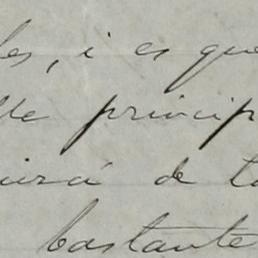 les, i es que
lle princip
uirá de to
bastante